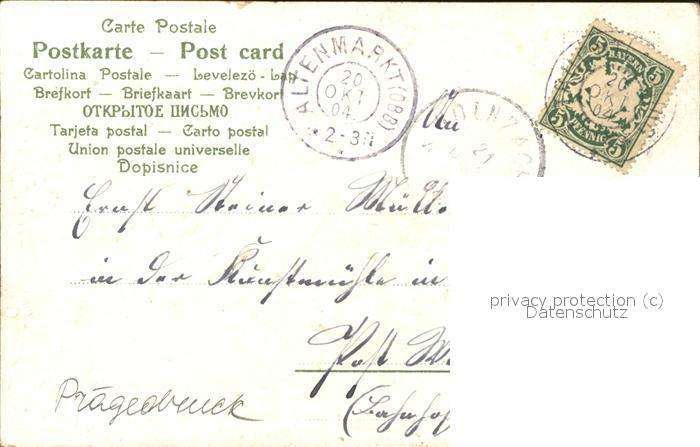 Carte Postale
Postkarte — Post card
Cartolina Postale — Levelező-Lap
Brefkort — Briefkaart — Brevkort
ОТКРЫТОЕ ПИСЬМО
Tarjeta postal — Carto postal
Union postale universelle
Dopisnice
ALTENMARKT (OBB)
20
OKT
04
2-3N
5 BAYERN 5
5 PFENNIG 5
20
04
21
An
Ernst Steiner
in der Kunstmühle in
Post
(Bahnhof
Prägedruck
privacy protection (c)
Datenschutz